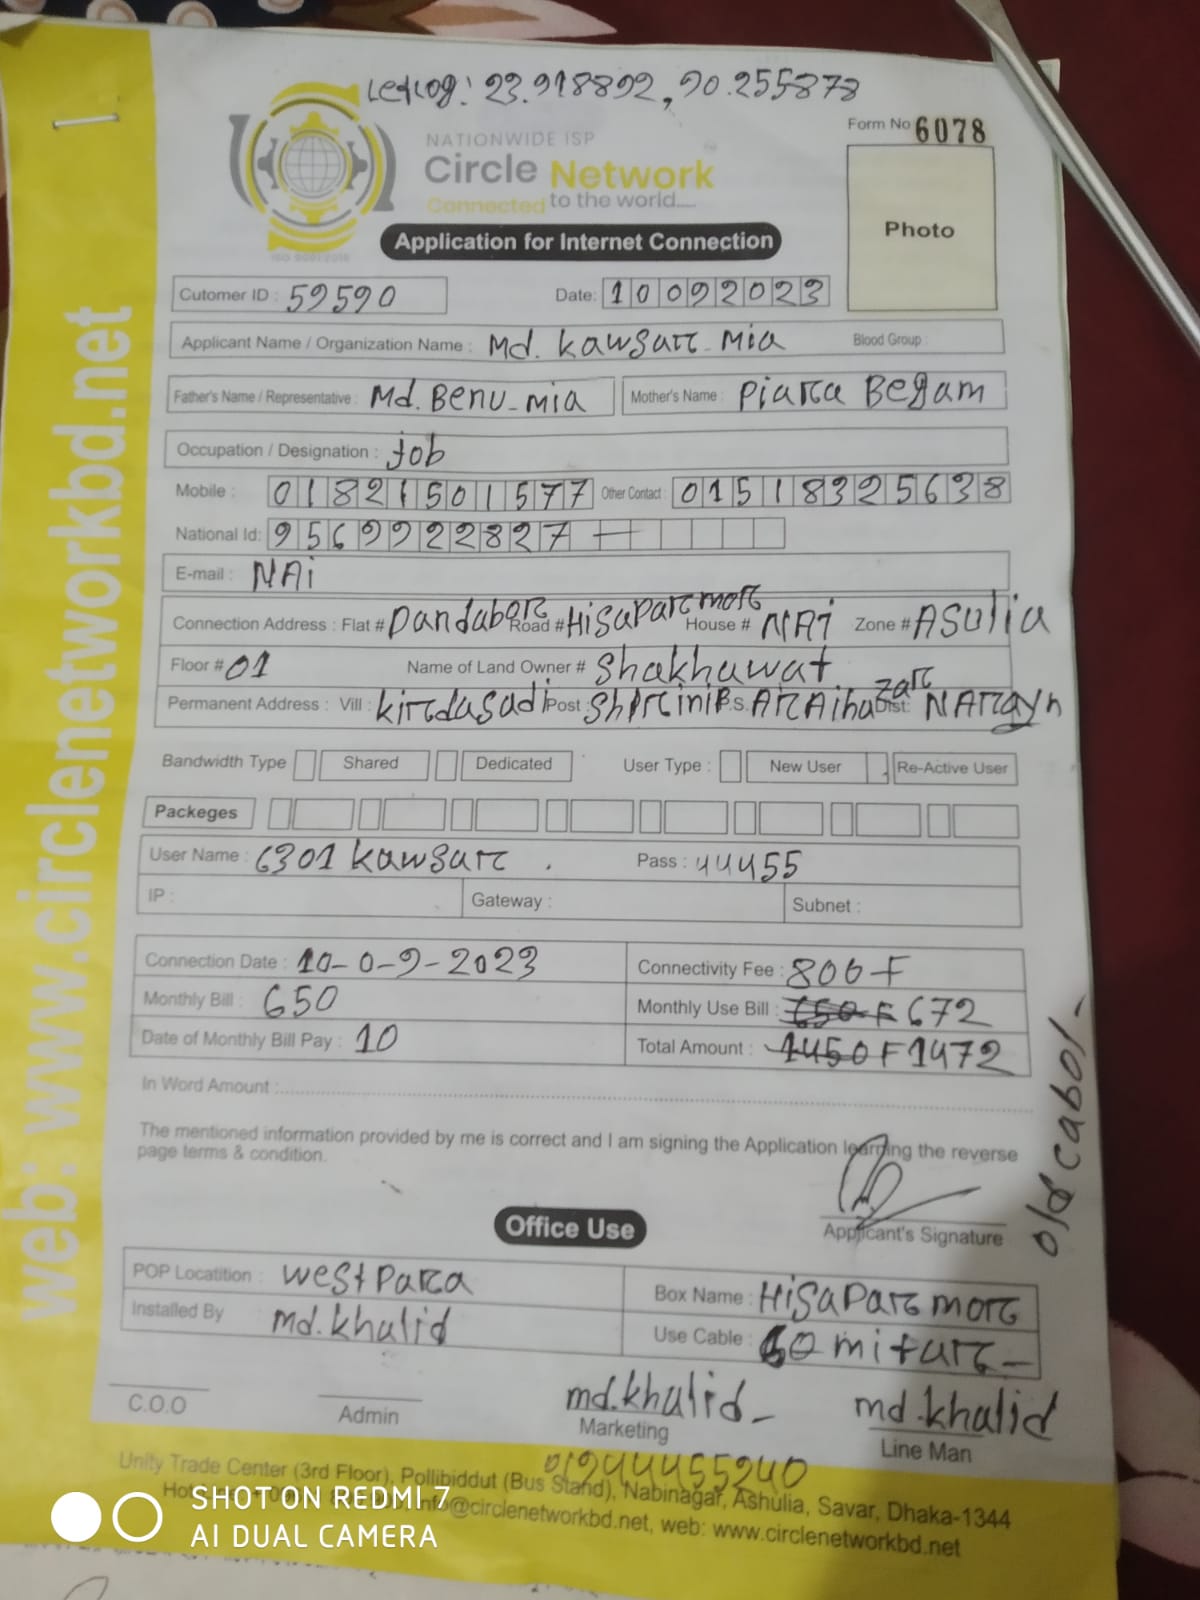 Letlog: 23.918892, 90.255878
NATIONWIDE ISP
Circle Network
Connected to the world....
ISO 9001:2015
Form No 6078
Photo
Application for Internet Connection
Cutomer ID : 59590 Date: 10092023
Applicant Name / Organization Name : Md. Kawsar Mia Blood Group :
Father's Name / Representative : Md. Benu Mia Mother's Name : Piara Begam
Occupation / Designation : Job
Mobile : 01821501577 Other Contact : 01518325638
National Id: 9569922827
E-mail : NAi
Connection Address : Flat # Pandabor Road # Hisapar mor House # NAi Zone # ASulia
Floor # 01 Name of Land Owner # Shakhawat
Permanent Address : Vill : Kirdasadi Post : Shirini P.S. ArAihazar Dist: NArayn
Bandwidth Type Shared Dedicated User Type : New User Re-Active User
Packeges
User Name : 6301 Kawsar . Pass : 44455
IP : Gateway : Subnet :
Connection Date : 10-0-9-2023 Connectivity Fee : 800 F
Monthly Bill : 650 Monthly Use Bill : 650 F 672
Date of Monthly Bill Pay : 10 Total Amount : 1450 F 1472
In Word Amount :
The mentioned information provided by me is correct and I am signing the Application learning the reverse
page terms & condition.
Applicant's Signature
old cabol-
Office Use
POP Locatition : West Para Box Name : Hisapar mor
Installed By md. Khalid Use Cable : 60 mitar
C.O.O Admin md. Khalid Marketing md. Khalid Line Man
01944455240
Unity Trade Center (3rd Floor), Pollibiddut (Bus Stand), Nabinagar, Ashulia, Savar, Dhaka-1344
info@circlenetworkbd.net, web: www.circlenetworkbd.net
web: www.circlenetworkbd.net
SHOT ON REDMI 7
AI DUAL CAMERA